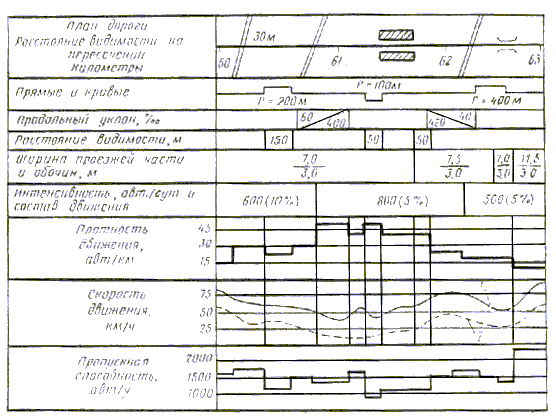 План дороги
Расстояние видимости на
пересечении
километры
30м
60
61
62
63
Прямые и кривые
r = 200м
r = 100м
r = 400м
Продольный уклон, ‰
60
400
420
40
Расстояние видимости, м
150
50
50
Ширина проезжей части
и обочин, м
7,0
3,0
7,5
3,0
7,0
3,0
11,5
3,0
Интенсивность, авт./сут и
состав движения
600 (10%)
800 (5%)
500 (5%)
Плотность
движения,
авт/км
45
30
15
Скорость
движения,
км/ч
75
50
25
Пропускная
способность,
авт/ч
2000
1500
1000